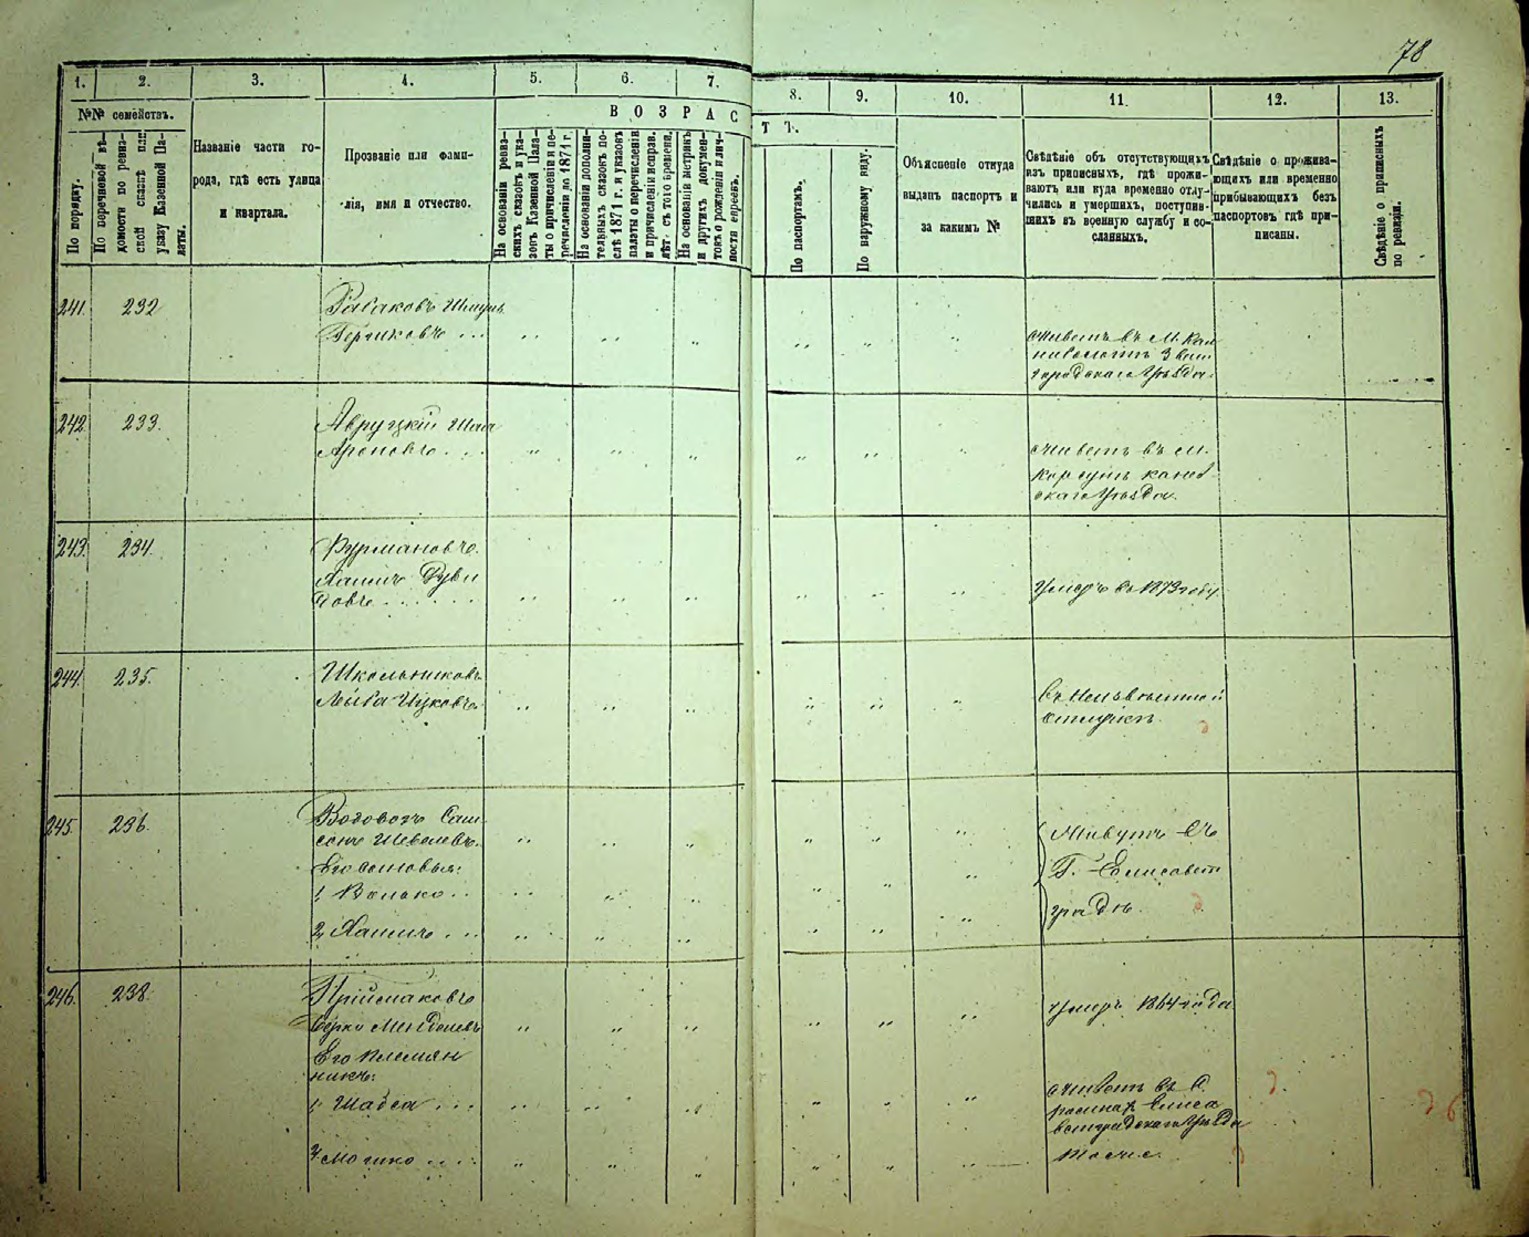 78
1.
2.
3.
4.
5.
6.
7.
8.
9.
10.
11.
12.
13.
№№ семействъ.
По порядку.
По перечневой вѣ-
домости по ревиз-
ской сказкѣ или
указу Казенной Па-
латы.
Названіе части го-
рода, гдѣ есть улица
и квартала.
Прозваніе или фами-
лія, имя и отчество.
ВОЗРАС
ТЪ.
На основаніи ревиз-
скихъ сказокъ и ука-
зовъ Казенной Пала-
ты о причисленіи и пе-
речисленіи до 1871 г.
На основаніи дополни-
тельныхъ сказокъ по-
слѣ 1871 г. и указовъ
палаты о перечисленіи
и причисленіи исправ.
лѣт. съ того времени.
На основаніи метрикъ
и другихъ докумен-
товъ о рожденіи и лич-
ности евреевъ.
По паспортамъ.
По наружному виду.
Объясненіе откуда
выданъ паспортъ и
за какимъ №
Свѣдѣніе объ отсутствующихъ
изъ приписныхъ, гдѣ прожи-
ваютъ или куда временно отлу-
чились и умершихъ, поступив-
шихъ въ военную службу и со-
сланныхъ.
Свѣдѣніе о прожива-
ющихъ или временно
прибывающихъ безъ
паспортовъ гдѣ при-
писаны.
Свѣдѣніе о приписныхъ
по ревизіи.
241. 232
Гершковъ ...
живетъ въ М.
242. 233.
Авруцкій Шая
Ароновъ ...
живетъ въ м.
Корсунѣ канев
скаго Уѣзда.
243. 234.
Фурмановъ
Хаимъ Дуви
довъ ......
умеръ въ 1873 году
244. 235.
Школьниковъ
Лейба Ицковъ.
въ неизвѣстной
отлучкѣ.
245. 236.
Водовозъ Сам
сонъ Шевелевъ.
Его сыновья:
1, Волько ..
2, Хаимъ ...
Живутъ въ
Г. Елисавет
градѣ.
246. 238.
Приймаковъ
Берко Менделевъ
Его племян
никъ:
1, Шабса ...
умеръ 1864 года
живетъ въ С.
Елиса
ветградскаго Уѣзда
Мошко ....
тоже.